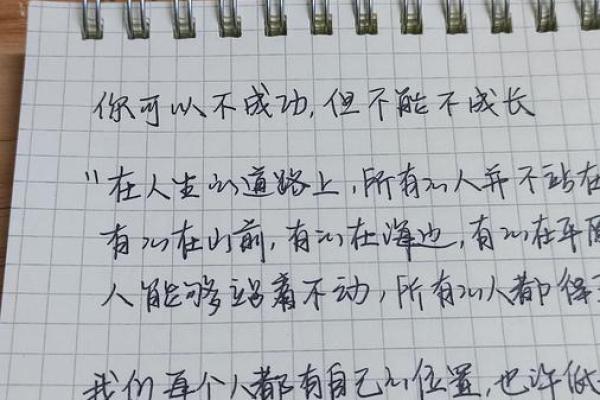 你可以不成功,但不能不成长
"在人生的道路上,所有的人并不站在
有的在山前,有的在海边,有的在平
人能够站着不动,所有的人都得
我们每个人都有自己的位置,也许低